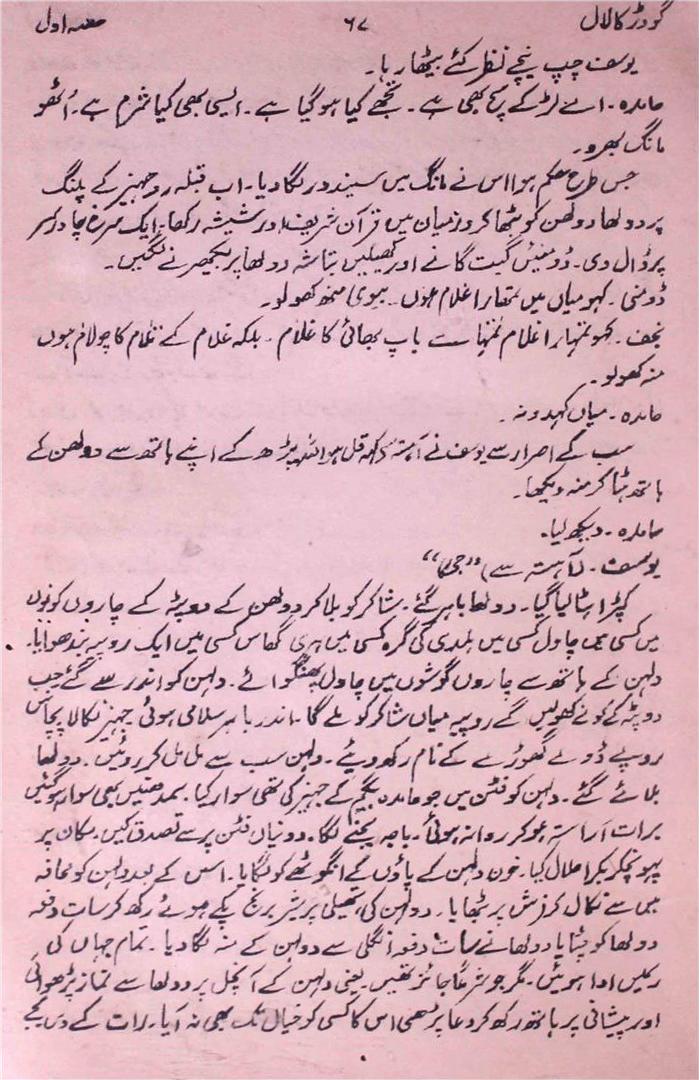 گودڑ کا لال ۶۷ حصہ اول
یوسف چپ نیچے نظر کئے بیٹھا رہا۔
حامدہ۔ اے لڑکے سچ بھی ہے۔ تجھے کیا ہو گیا ہے۔ ایسی بھی کیا شرم ہے۔ اُٹھو
مانگ بھرو۔
جس طرح حکم ہوا اس نے مانگ میں سیندور لگا دیا۔ اب قبلہ رو جہیز کے پلنگ
پر دولھا دولھن کو بٹھا کر درمیان میں قرآن شریف اور شیشہ رکھا۔ ایک سرخ چادر سر
پر ڈال دی۔ ڈومنیئں گیت گانے اور کھیلیں بتاشہ دولھا پر بکھیرنے لگیں۔
ڈومنی۔ کہو میاں میں تمھارا غلام ہوں۔ بیوی منھ کھولو۔
نجف۔ کہو تمہارا غلام تمہارے باپ بھائی کا غلام۔ بلکہ غلام کے غلام کا چولام ہوں
منہ کھولو۔
حامدہ۔ میاں کہدو نہ۔
سب کے اصرار سے یوسف نے آہستہ کہہ قل ہو اللہ پڑھ کے اپنے ہاتھ سے دولھن کے
ہاتھ ہٹا کر منہ دیکھا۔
حامدہ۔ دیکھ لیا۔
یوسف۔ (آہستہ سے) "جی"
کپڑا ہٹا لیا گیا۔ دولھا باہر گئے۔ شاکر کو بلا کر دولھن کے دوپٹہ کے چاروں کونوں
میں کسی میں چاول کسی میں ہلدی کی گرہ کسی میں ہری گھاس کسی میں ایک روپیہ بندھوایا۔
دلہن کے ہاتھ سے چاروں گوشوں میں چاول پھنکوائے۔ دلہن کو اندر سے گئے جب
دوپٹہ کے کونے کھولیں گے روپیہ میاں شاکر کو ملے گا۔ اندر باہر سلامی ہوئی جہیز نکالا پچاس
روپے ڈولے گھوڑے کے نام رکھ دیئے۔ دلہن سب سے مل مل کر روئیں۔ دولھا
بلائے گئے۔ دلہن کو فٹن میں جو حامدہ بیگم کے جہیز کی تھی سوار کیا۔ سمدھنیں بھی سوار ہو گئیں
برات آراستہ ہو کر روانہ ہوئی۔ باجہ بجنے لگا۔ دونیاں فٹن پر سے تصدق کیں۔ مکان پر
پہونچکر بکرا حلال کیا۔ خون دلہن کے پاؤں کے انگوٹھے کو لگایا۔ اس کے بعد دلہن کو محافہ
میں سے نکال کر فرش پر بٹھایا۔ دولہن کی ہتھیلی پر شیر برنج پکے ہوئے رکھ کر سات دفعہ
دولھا کو چٹایا دولھا نے سات دفعہ انگلی سے دولہن کے منہ لگا دیا۔ تمام جہاں کی
رسمیں ادا ہوئیں۔ مگر جو شرعاً جائز تھیں یعنی دلہن کے آنچل پر دولھا سے نماز پڑھوائی
اور پیشانی پر ہاتھ رکھ کر دعا پڑھی اس کا کسی کو خیال تک بھی نہ آیا۔ رات کے دس بجے